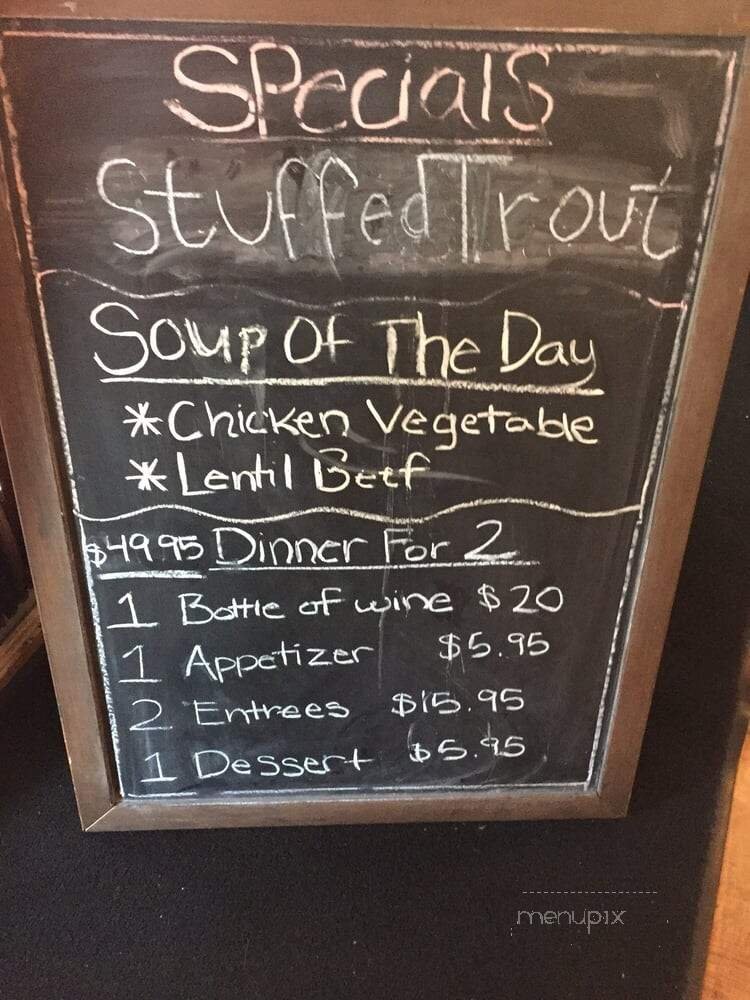 Specials
Stuffed Trout
Soup Of The Day
* Chicken Vegetable
* Lentil Beef
$49.95 Dinner For 2
1 Bottle of wine $20
1 Appetizer $5.95
2 Entrees $15.95
1 Dessert $5.95
menupix